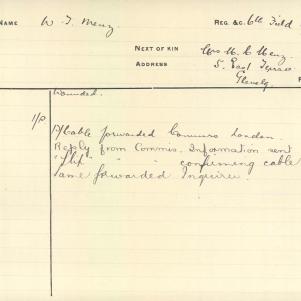 NAME W. T. Menz REG. &C. 6th Field
NEXT OF KIN Mrs M. C. Menz
ADDRESS 5, East Terrace
Glenelg
Wounded.
cable forwarded Commrs London.
Reply from Commis. Information sent
"Slip" " " confirming cable
Same forwarded Inquirer.